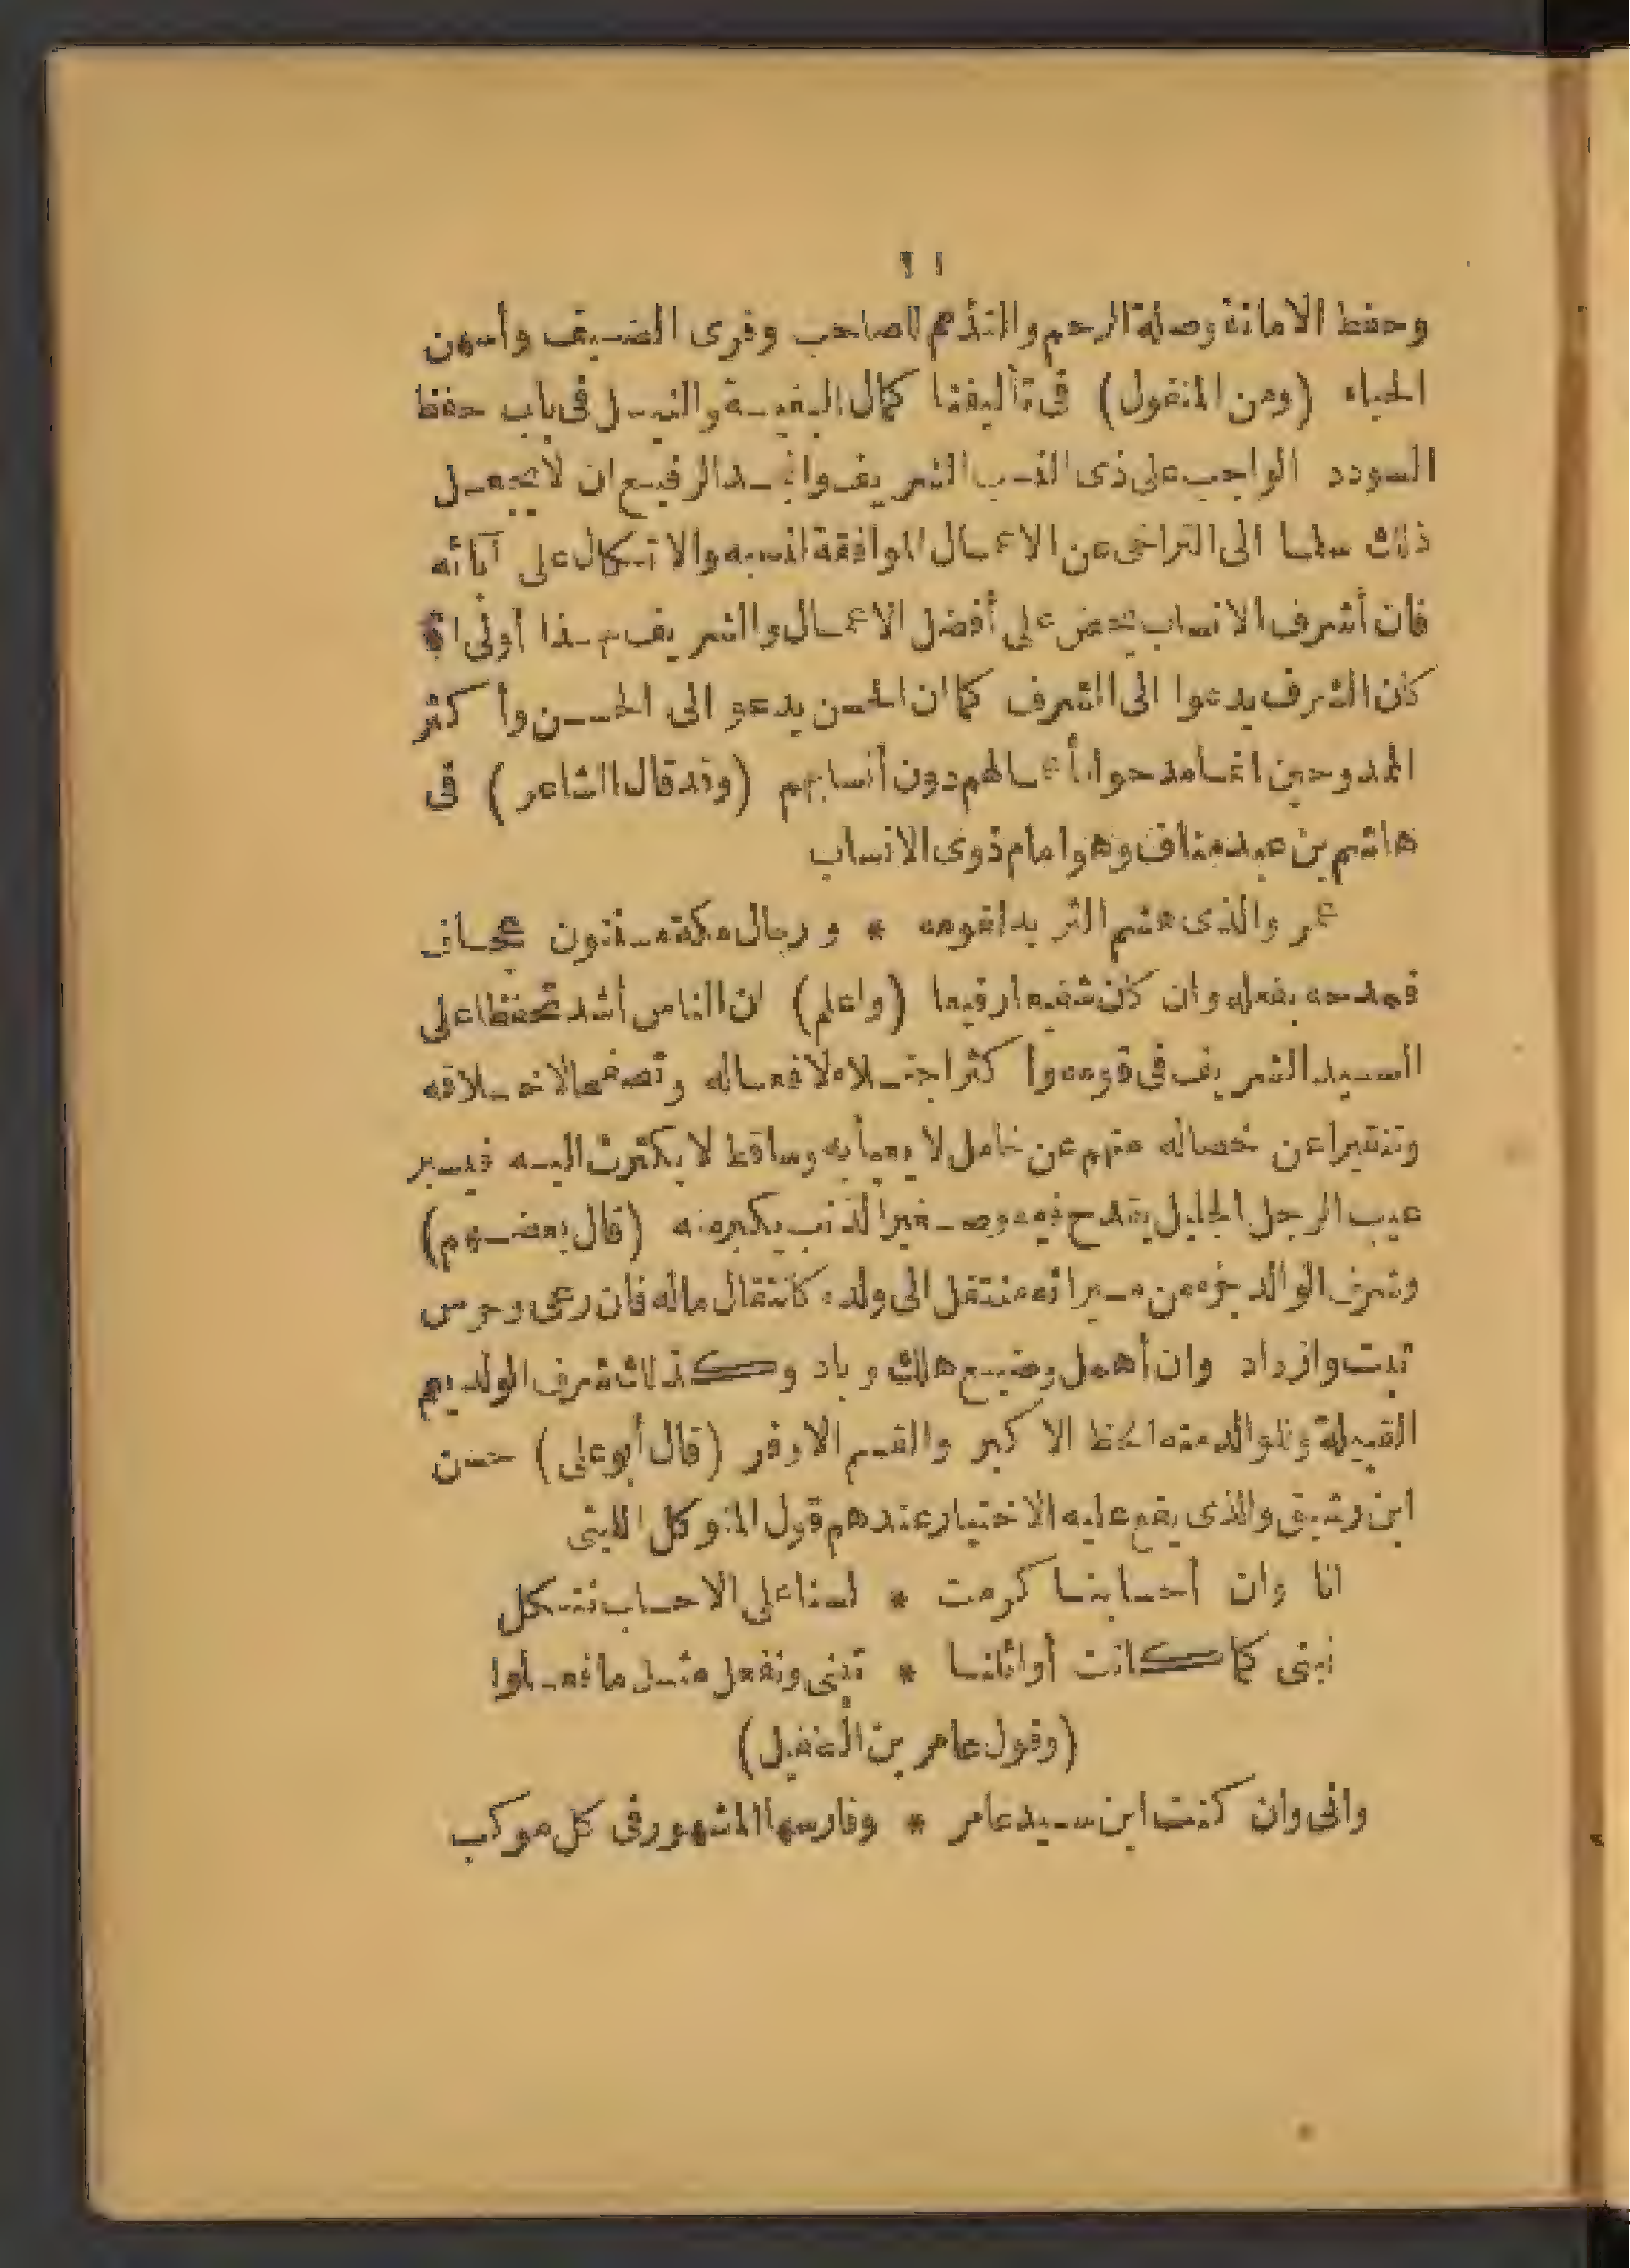 ٦١
وحفظ الامانة وصلة الرحم والتذمم للصاحب وقرى الضيف وأسهن
الحياء (ومن المنقول) فى تأليفنا كمال البغيـة والنيـل فى باب حفظ
السودد الواجب على ذى النسب الشريف والمجـد الرفيـع ان لا يجعـل
ذلك سلما الى التراخى عن الاعمـال الموافقة لنسبه والاتكال على آبائه
فان أشرف الانساب يحض على أفضل الاعمـال والشريف بهـذا أولى اذ
كان الشرف يدعوا الى الشرف كما ان الحسن يدعو الى الحسـن وأكثر
الممدوحين انمـا مدحوا بأعمـالهم دون أنسابهم (وقد قال الشاعر) فى
هاشم بن عبد مناف وهو امام ذوى الانساب
عمرو الذى هشم الثريد لقومه * ورجال مكة مسـنتون عجـاف
فمدحه بفعله وان كان شفيعا رفيعا (واعلم) ان الناس أشد تحفظا على
السـيد الشريف فى قومه وأكثر اجتـلاء لافعـاله وتصفحا لاخـلاقه
وتنقيرا عن خصاله منهم عن خامل لا يعبأ به وساقط لا يكترث اليـه فيسير
عيب الرجل الجليل يقدح فيه وصـغير الذنب يكبر منه (قال بعضـهم)
وشرف الوالد جزء من مـيراثه منتقل الى ولده كانتقال ماله فان رعى وحرس
ثبت وازداد وان أهمل وضيـع هلك وباد وكـذلك شرف الولد يعم
القبيلة وللوالد منه الحظ الاكبر والقسم الاوفر (قال أبو على) حسن
ابن رشيق والذى يقع عليه الاختيار عندهم قول المتوكل الليثى
انا وان أحسابنـا كرمت * لسنا على الاحساب نتـكل
نبنى كما كـانت أوائلنـا * تبنى ونفعل مثـل ما فعـلوا
(وقول عامر بن الطفيل)
وانى وان كنت ابن سـيد عامر * وفارسها المشهور فى كل موكب